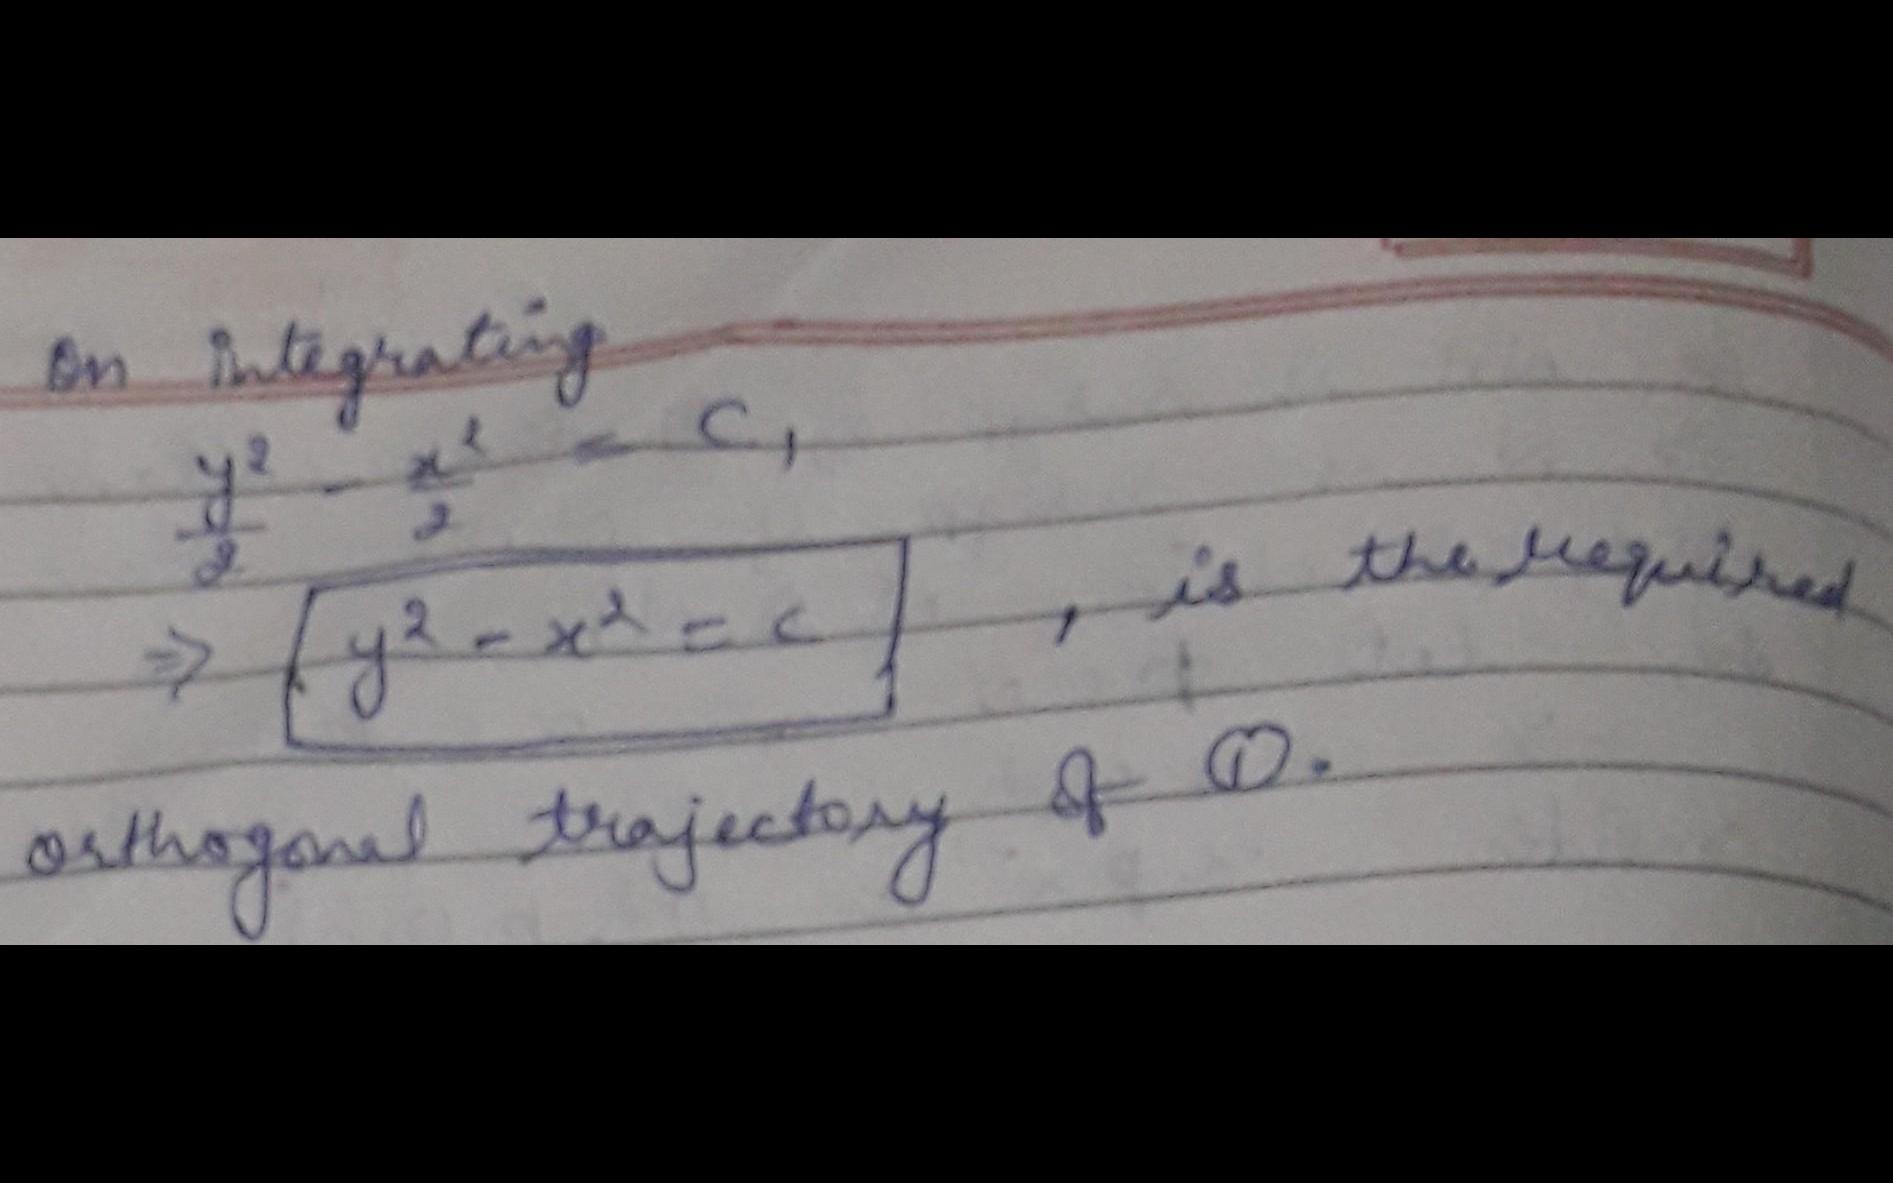 On integrating
y²/2 - x²/2 = C₁
⇒ y² - x² = c , is the required
orthogonal trajectory of ①.